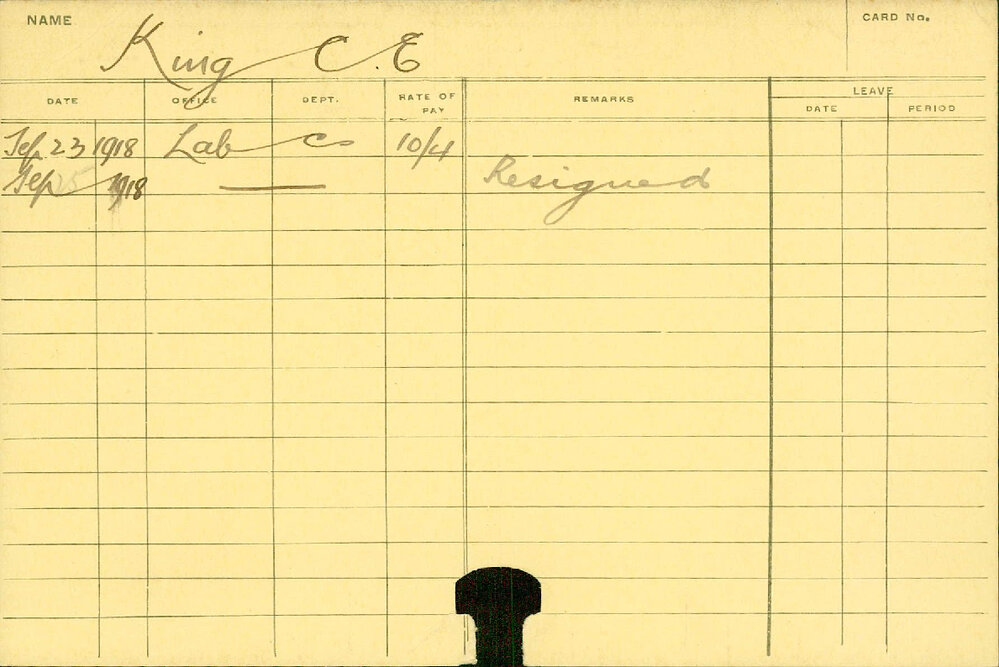 NAME King C.E CARD No.
LEAVE
DATE OFFICE DEPT. RATE OF PAY REMARKS DATE PERIOD
Sep 23 1918 Lab C 10/4
Sep 1918 — Resigned